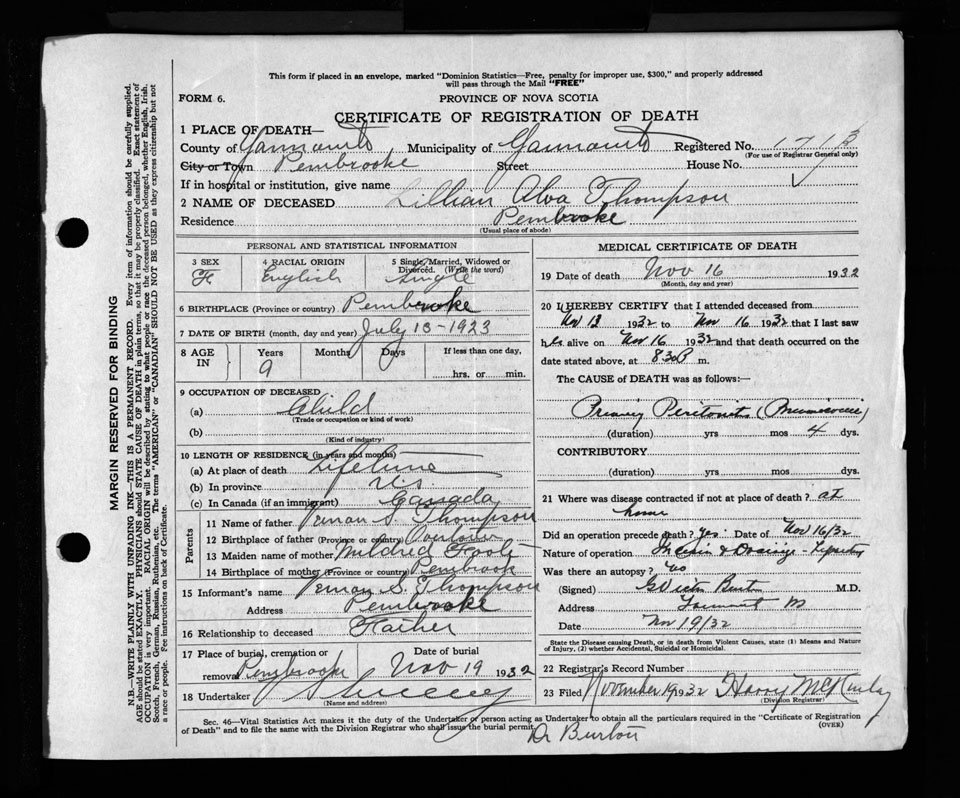 This form if placed in an envelope, marked "Dominion Statistics—Free, penalty for improper use, $300," and properly addressed
will pass through the Mail "FREE"
FORM 6.
PROVINCE OF NOVA SCOTIA
CERTIFICATE OF REGISTRATION OF DEATH
1 PLACE OF DEATH—
County of Yarmouth Municipality of Yarmouth Registered No. 1713
(For use of Registrar General only)
City or Town Pembrooke Street House No.
If in hospital or institution, give name
2 NAME OF DECEASED Lillian Alva Thompson
Residence Pembrooke
(Usual place of abode)
PERSONAL AND STATISTICAL INFORMATION
3 SEX 4 RACIAL ORIGIN 5 Single, Married, Widowed or
Divorced. (Write the word)
F English Single
6 BIRTHPLACE (Province or country) Pembrooke
7 DATE OF BIRTH (month, day and year) July 13-1923
8 AGE IN Years Months Days If less than one day,
9
hrs. or min.
9 OCCUPATION OF DECEASED
(a) Child
(Trade or occupation or kind of work)
(b)
(Kind of industry)
10 LENGTH OF RESIDENCE (in years and months)
(a) At place of death Lifetime
(b) In province
(c) In Canada (if an immigrant) Canada
Parents
11 Name of father Vernan S. Thompson
12 Birthplace of father (Province or country) Overton
13 Maiden name of mother Mildred
14 Birthplace of mother (Province or country) Pembrook
15 Informant's name Vernan S. Thompson
Address Pembrooke
16 Relationship to deceased Father
17 Place of burial, cremation or Date of burial
removal Pembrooke Nov 19 1932
18 Undertaker Sweeney
(Name and address)
MEDICAL CERTIFICATE OF DEATH
19 Date of death Nov 16 1932
(Month, day and year)
20 I HEREBY CERTIFY that I attended deceased from
Nov 13 1932 to Nov 16 1932 that I last saw
her alive on Nov 16 1932 and that death occurred on the
date stated above, at 8 30 P m.
The CAUSE of DEATH was as follows:—
Primary Peritonitis
(duration) yrs mos 4 dys.
CONTRIBUTORY
(duration) yrs mos dys.
21 Where was disease contracted if not at place of death? at
home
Did an operation precede death? Yes Date of Nov 16/32
Nature of operation Incision & Drainage
Was there an autopsy? No
(Signed) Burton M.D.
Address Yarmouth
Date Nov 19/32
State the Disease causing Death, or in death from Violent Causes, state (1) Means and Nature
of Injury, (2) whether Accidental, Suicidal or Homicidal.
22 Registrar's Record Number
23 Filed November 19 1932 Harry McKinlay
(Division Registrar)
Sec. 46—Vital Statistics Act makes it the duty of the Undertaker or person acting as Undertaker to obtain all the particulars required in the "Certificate of Registration
of Death" and to file the same with the Division Registrar who shall issue the burial permit.
(OVER)
Dr Burton
MARGIN RESERVED FOR BINDING
N.B.—WRITE PLAINLY WITH UNFADING INK—THIS IS A PERMANENT RECORD. Every item of information should be carefully supplied.
AGE should be stated EXACTLY. PHYSICIANS should STATE CAUSE OF DEATH in plain terms, so that it may be properly classified. Exact statement of
OCCUPATION is very important. RACIAL ORIGIN will be described by stating to what people or race the deceased person belonged, whether English, Irish,
Scotch, French, German, Russian, Ruthenian, etc. The terms "AMERICAN" or "CANADIAN" SHOULD NOT BE USED as they express citizenship but not
a race or people. Fee instructions on back of Certificate.